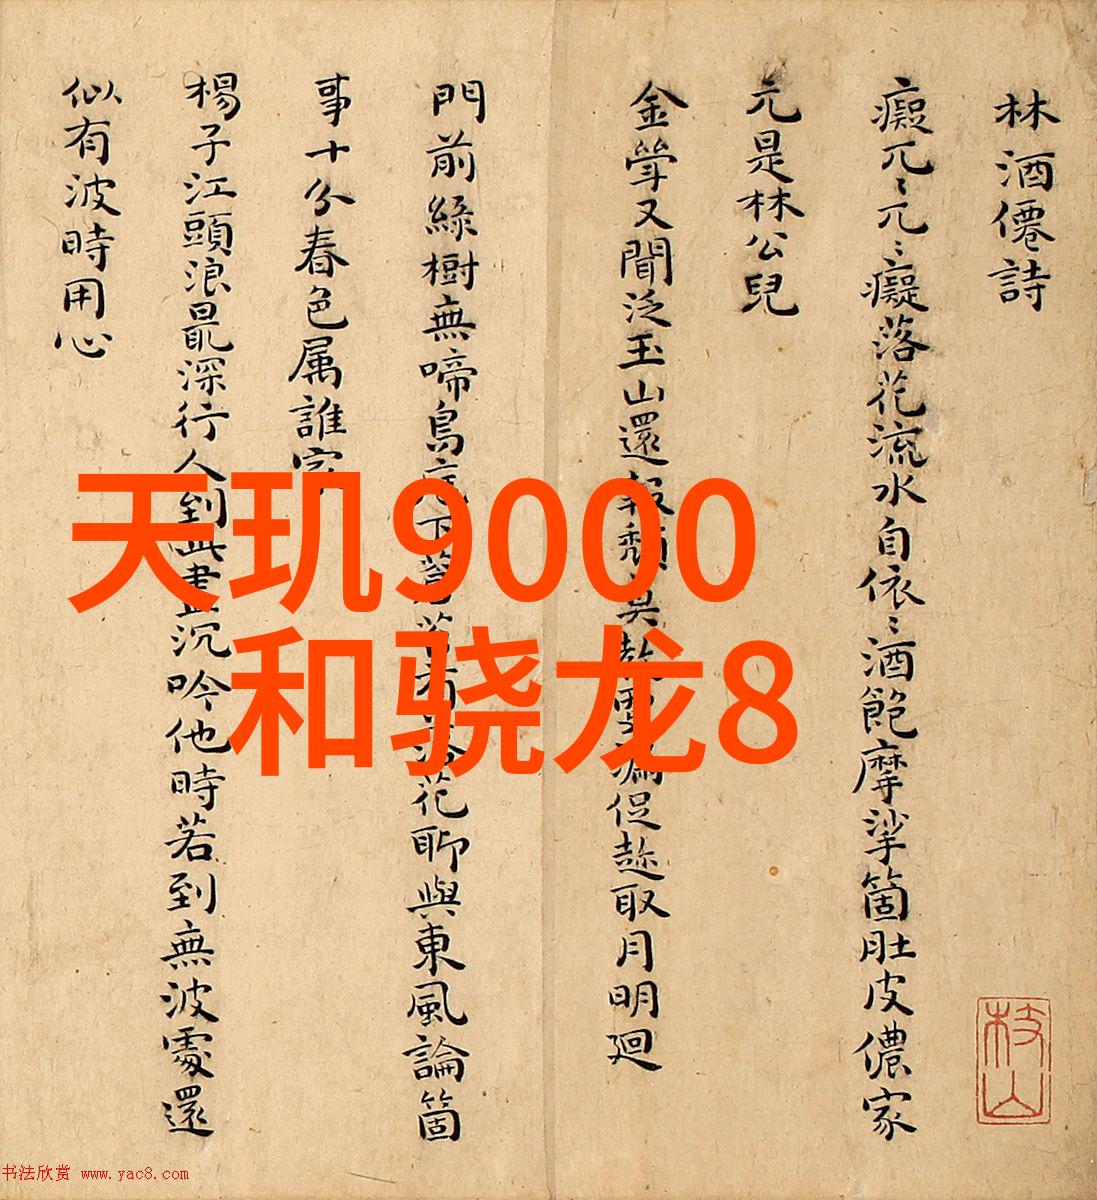 林酒僊詩
癡兀〻兀〻癡落花流水自依〻酒飽摩挲箇肚皮儂家
元是林公兒
金斝又聞泛玉山還報頹莫
漏促趂取月明廻
門前綠樹無啼鳥底下蒼苔有落花聊與東風論箇
事十分春色属誰家
楊子江頭浪最深行人到此盡沉吟他時若到無波處還
似有波時用心
枝山
天玑9000
和骁龙8
书法欣赏 www.yac8.com